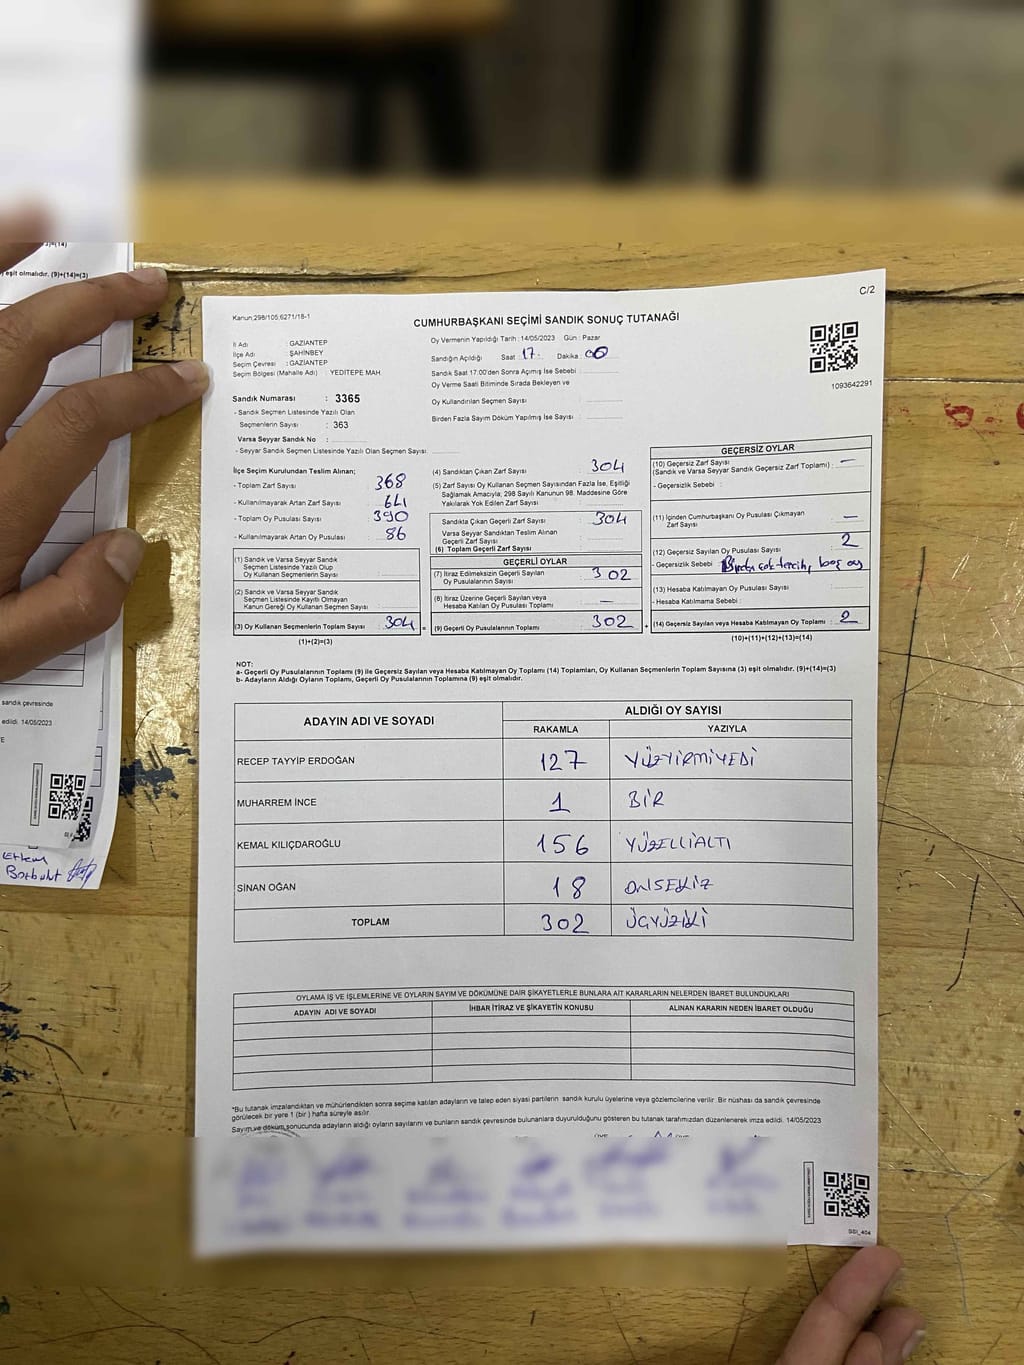 )=(14)
) eşit olmalıdır. (9)+(14)=(3)
sandık çevresinde
edildi. 14/05/2023
Ertem
Bozbulut
C/2
Kanun:298/105;6271/18-1
CUMHURBAŞKANI SEÇİMİ SANDIK SONUÇ TUTANAĞI
1093642291
İl Adı : GAZİANTEP
İlçe Adı : ŞAHİNBEY
Seçim Çevresi : GAZİANTEP
Seçim Bölgesi (Mahalle Adı) : YEDİTEPE MAH.
Oy Vermenin Yapıldığı Tarih :14/05/2023 Gün : Pazar
Sandığın Açıldığı Saat 17 : Dakika : 00
Sandık Saat 17:00'den Sonra Açımış İse Sebebi :
Oy Verme Saati Bitiminde Sırada Bekleyen ve
Oy Kullandırılan Seçmen Sayısı :
Birden Fazla Sayım Döküm Yapılmış İse Sayısı :
Sandık Numarası : 3365
- Sandık Seçmen Listesinde Yazılı Olan
Seçmenlerin Sayısı : 363
Varsa Seyyar Sandık No :
- Seyyar Sandık Seçmen Listesinde Yazılı Olan Seçmen Sayısı.
İlçe Seçim Kurulundan Teslim Alınan;
- Toplam Zarf Sayısı : 368
- Kullanılmayarak Artan Zarf Sayısı : 64
- Toplam Oy Pusulası Sayısı : 390
- Kullanılmayarak Artan Oy Pusulası : 86
(1) Sandık ve Varsa Seyyar Sandık
Seçmen Listesinde Yazılı Olup
Oy Kullanan Seçmenlerin Sayısı :
(2) Sandık ve Varsa Seyyar Sandık
Seçmen Listesinde Kayıtlı Olmayan
Kanun Gereği Oy Kullanan Seçmen Sayısı :
(3) Oy Kullanan Seçmenlerin Toplam Sayısı : 304
(1)+(2)=(3)
(4) Sandıktan Çıkan Zarf Sayısı : 304
(5) Zarf Sayısı Oy Kullanan Seçmen Sayısından Fazla İse, Eşitliği
Sağlamak Amacıyla; 298 Sayılı Kanunun 98. Maddesine Göre
Yakılarak Yok Edilen Zarf Sayısı :
Sandıkta Çıkan Geçerli Zarf Sayısı : 304
Varsa Seyyar Sandıktan Teslim Alınan
Geçerli Zarf Sayısı :
(6) Toplam Geçerli Zarf Sayısı :
GEÇERLİ OYLAR
(7) İtiraz Edilmeksizin Geçerli Sayılan
Oy Pusulalarının Sayısı : 302
(8) İtiraz Üzerine Geçerli Sayılan veya
Hesaba Katılan Oy Pusulası Toplamı : —
(9) Geçerli Oy Pusulalarının Toplamı : 302
GEÇERSİZ OYLAR
(10) Geçersiz Zarf Sayısı
(Sandık ve Varsa Seyyar Sandık Geçersiz Zarf Toplamı) : —
- Geçersizlik Sebebi :
(11) İçinden Cumhurbaşkanı Oy Pusulası Çıkmayan
Zarf Sayısı : —
(12) Geçersiz Sayılan Oy Pusulası Sayısı : 2
- Geçersizlik Sebebi : Birden çok tercih, boş oy
(13) Hesaba Katılmayan Oy Pusulası Sayısı :
- Hesaba Katılmama Sebebi :
(14) Geçersiz Sayılan veya Hesaba Katılmayan Oy Toplamı : 2
(10)+(11)+(12)+(13)=(14)
NOT:
a- Geçerli Oy Pusulalarının Toplamı (9) ile Geçersiz Sayılan veya Hesaba Katılmayan Oy Toplamı (14) Toplamları, Oy Kullanan Seçmenlerin Toplam Sayısına (3) eşit olmalıdır. (9)+(14)=(3)
b- Adayların Aldığı Oyların Toplamı, Geçerli Oy Pusulalarının Toplamına (9) eşit olmalıdır.
ADAYIN ADI VE SOYADI ALDIĞI OY SAYISI
RAKAMLA YAZIYLA
RECEP TAYYİP ERDOĞAN 127 YÜZYİRMİYEDİ
MUHARREM İNCE 1 BİR
KEMAL KILIÇDAROĞLU 156 YÜZELLİALTI
SİNAN OĞAN 18 ONSEKİZ
TOPLAM 302 ÜÇYÜZİKİ
OYLAMA İŞ VE İŞLEMLERİNE VE OYLARIN SAYIM VE DÖKÜMÜNE DAİR ŞİKAYETLERLE BUNLARA AİT KARARLARIN NELERDEN İBARET BULUNDUKLARI
ADAYIN ADI VE SOYADI İHBAR İTİRAZ VE ŞİKAYETİN KONUSU ALINAN KARARIN NEDEN İBARET OLDUĞU
*Bu tutanak imzalandıktan ve mühürlendikten sonra seçime katılan adayların ve talep eden siyasi partilerin sandık kurulu üyelerine veya gözlemcilerine verilir. Bir nüshası da sandık çevresinde
görülecek bir yere 1 (bir) hafta süreyle asılır.
Sayım ve döküm sonucunda adayların aldığı oyların sayılarını ve bunların sandık çevresinde bulunanlara duyurulduğunu gösteren bu tutanak tarafımızdan düzenlenerek imza edildi. 14/05/2023
GSI_404